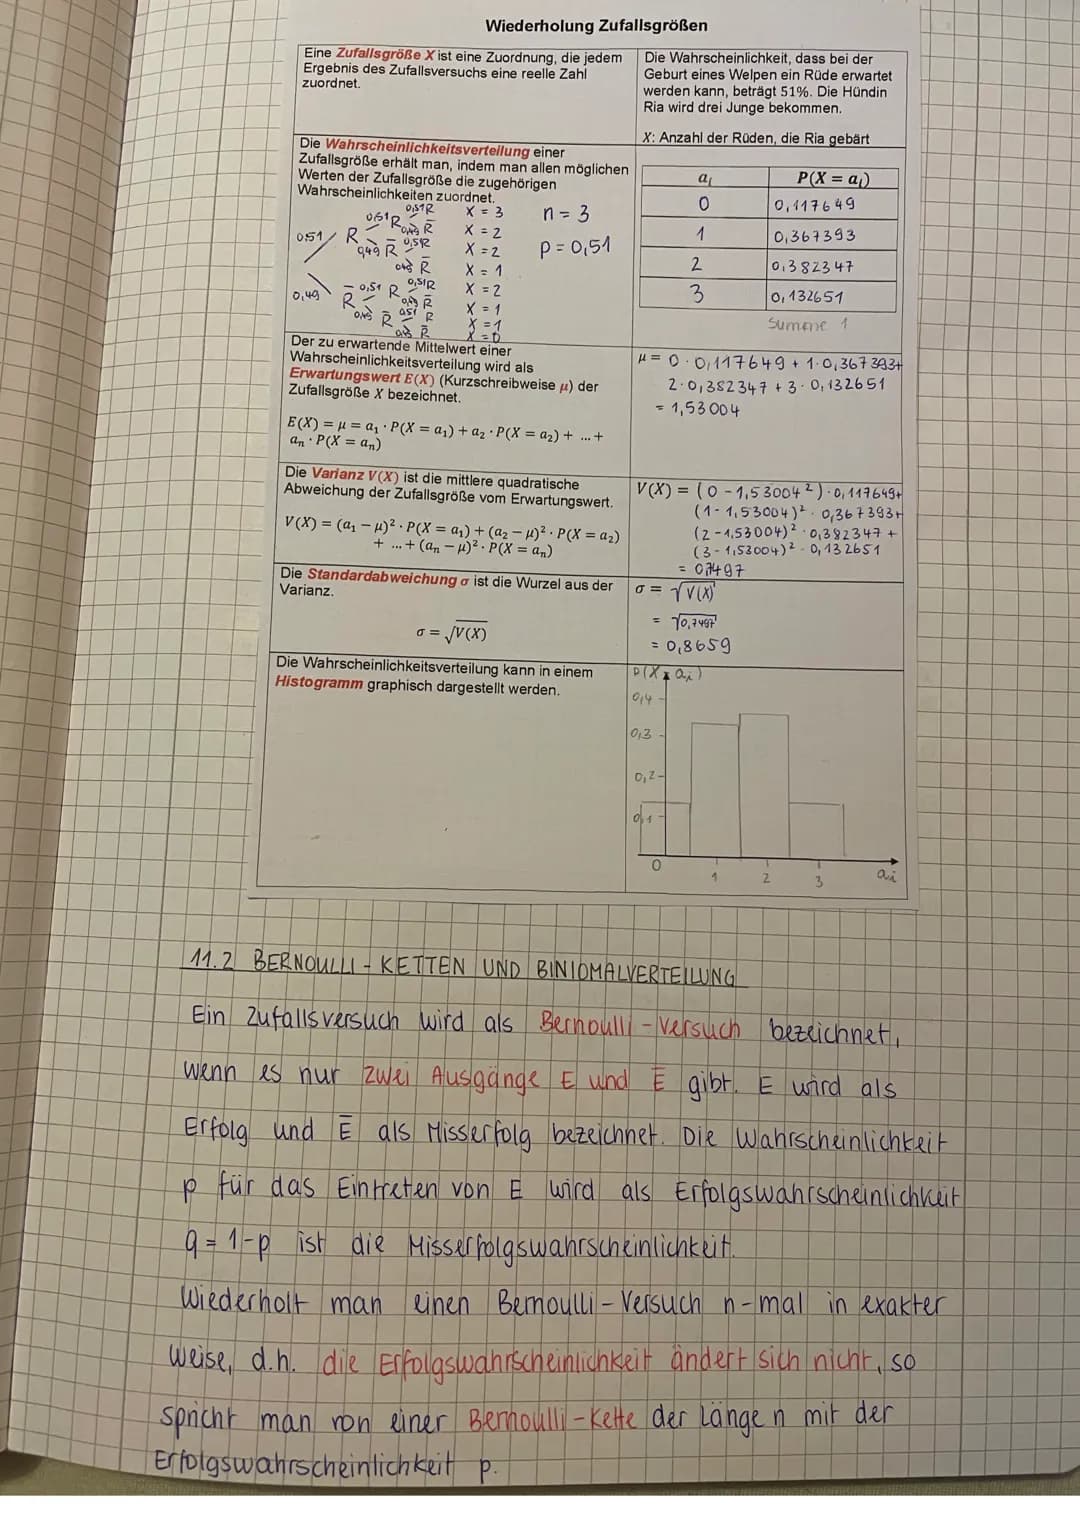 Wiederholung Zufallsgrößen
Eine Zufallsgröße X ist eine Zuordnung, die jedem
Ergebnis des Zufallsversuchs eine reelle Zahl
zuordnet.
Die Wahrscheinlichkeit, dass bei der
Geburt eines Welpen ein Rüde erwartet
werden kann, beträgt 51%. Die Hündin
Ria wird drei Junge bekommen.
X: Anzahl der Rüden, die Ria gebärt
Die Wahrscheinlichkeitsverteilung einer
Zufallsgröße erhält man, indem man allen möglichen
Werten der Zufallsgröße die zugehörigen
Wahrscheinlichkeiten zuordnet.
0,51 R X = 3 n = 3
0,51 R 0,49 R̅ X = 2
0,51 R 0,49 R̅ 0,51 R X = 2 p = 0,51
0,49 R̅ X = 1
0,49 R̅ 0,51 R 0,51 R X = 2
0,49 R̅ X = 1
0,49 R̅ 0,51 R X = 1
0,49 R̅ X = 0
aᵢ P(X = aᵢ)
0 0,117649
1 0,367393
2 0,382347
3 0,132651
Summe 1
Der zu erwartende Mittelwert einer
Wahrscheinlichkeitsverteilung wird als
Erwartungswert E(X) (Kurzschreibweise μ) der
Zufallsgröße X bezeichnet.
E(X) = μ = a₁ · P(X = a₁) + a₂ · P(X = a₂) + ... +
aₙ · P(X = aₙ)
μ = 0 · 0,117649 + 1 · 0,367393+
2 · 0,382347 + 3 · 0,132651
= 1,53004
Die Varianz V(X) ist die mittlere quadratische
Abweichung der Zufallsgröße vom Erwartungswert.
V(X) = (a₁ − μ)² · P(X = a₁) + (a₂ − μ)² · P(X = a₂)
+ ... + (aₙ − μ)² · P(X = aₙ)
V(X) = (0 - 1,53004²) · 0,117649+
(1 - 1,53004)² · 0,367393+
(2 - 1,53004)² · 0,382347 +
(3 - 1,53004)² · 0,132651
= 0,7497
Die Standardabweichung σ ist die Wurzel aus der
Varianz.
σ = √V(X)
σ = √V(X)
= √0,7497
= 0,8659
Die Wahrscheinlichkeitsverteilung kann in einem
Histogramm graphisch dargestellt werden.
P(X = aᵢ)
0,4
0,3
0,2
0,1
0 1 2 3 aᵢ
11.2 BERNOULLI - KETTEN UND BINIOMALVERTEILUNG
Ein Zufallsversuch wird als Bernoulli - Versuch bezeichnet,
wenn es nur zwei Ausgänge E und E̅ gibt. E wird als
Erfolg und E̅ als Misserfolg bezeichnet. Die Wahrscheinlichkeit
p für das Eintreten von E wird als Erfolgswahrscheinlichkeit
q = 1-p ist die Misserfolgswahrscheinlichkeit.
Wiederholt man einen Bernoulli - Versuch n-mal in exakter
Weise, d.h. die Erfolgswahrscheinlichkeit ändert sich nicht, so
spricht man von einer Bernoulli - Kette der Länge n mit der
Erfolgswahrscheinlichkeit p.